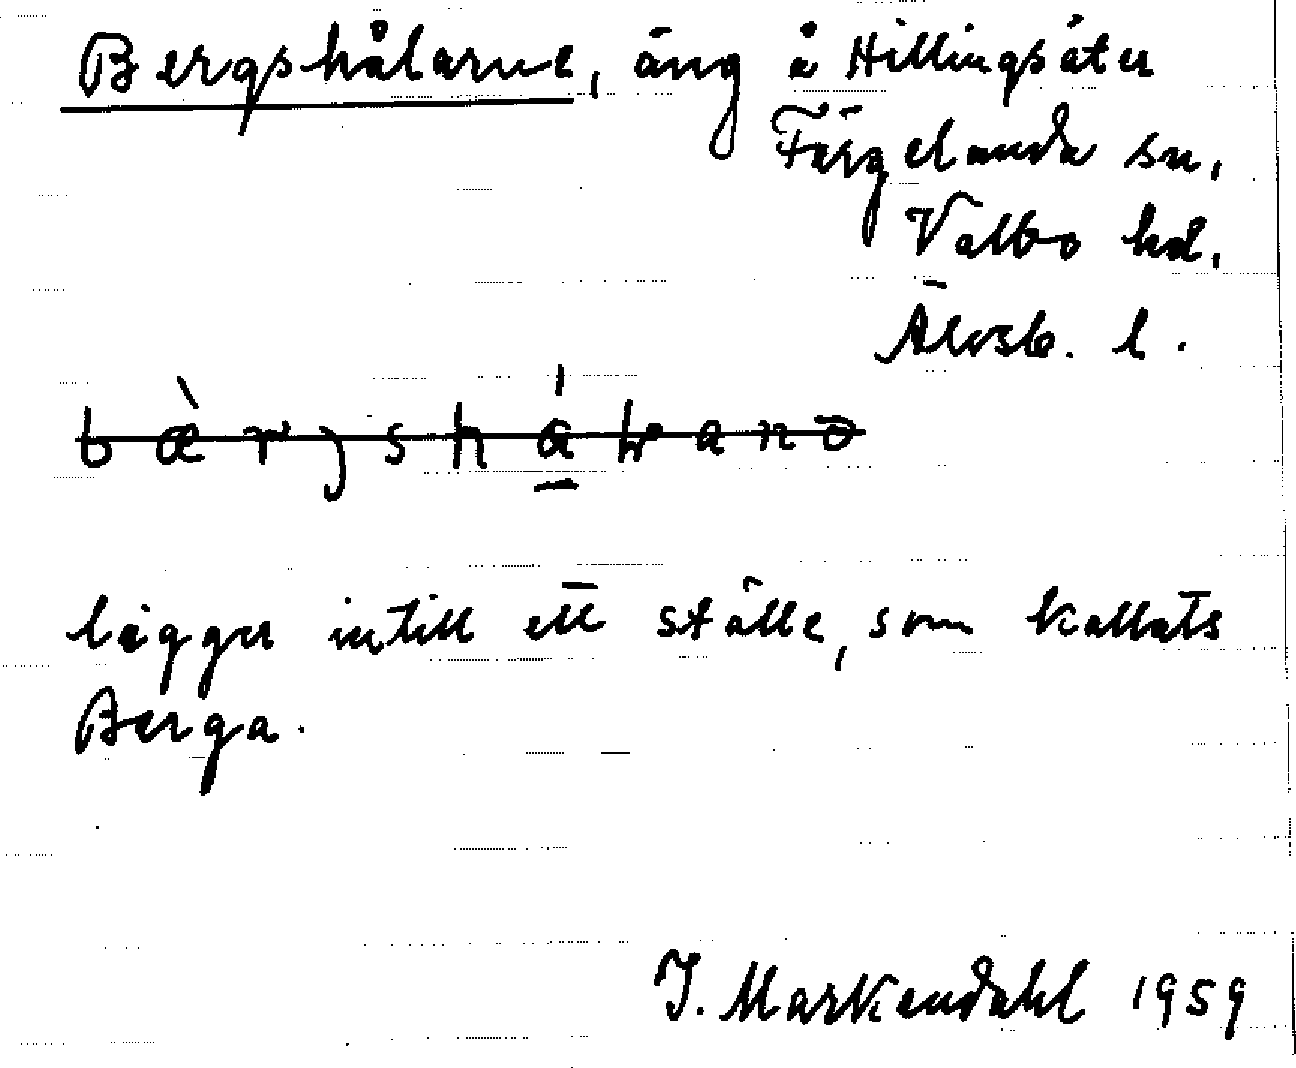 Bergshålarne, äng å Hillingsäter
Färgelanda sn,
Valbo hd,
Älvsb. l.
ligger intill ett ställe, som kallats
Berga.
J. Markendahl 1959